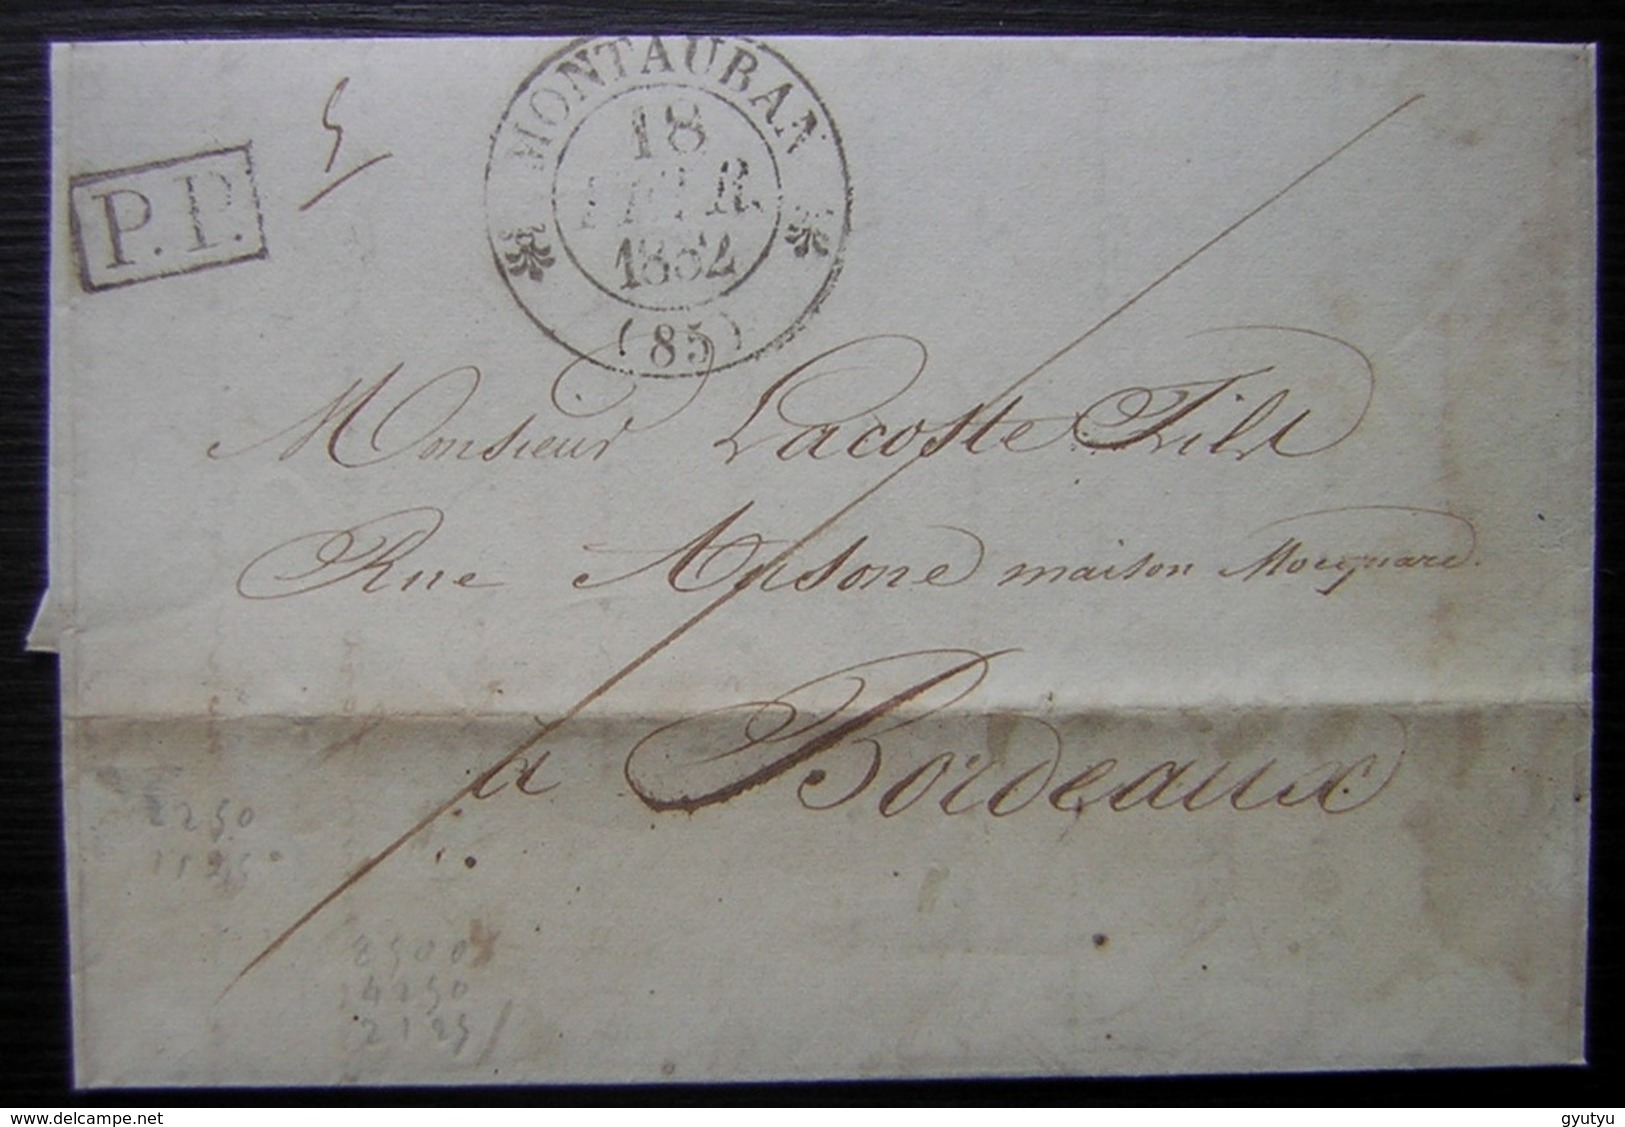 MONTAUBAN
18
1832
(85)
P.P.
5
Monsieur Lacoste Fils
Rue Ausone maison Mocquard.
à Bordeaux
2250
1125
8500
4250
2125/
www.delcampe.net
gyutyu